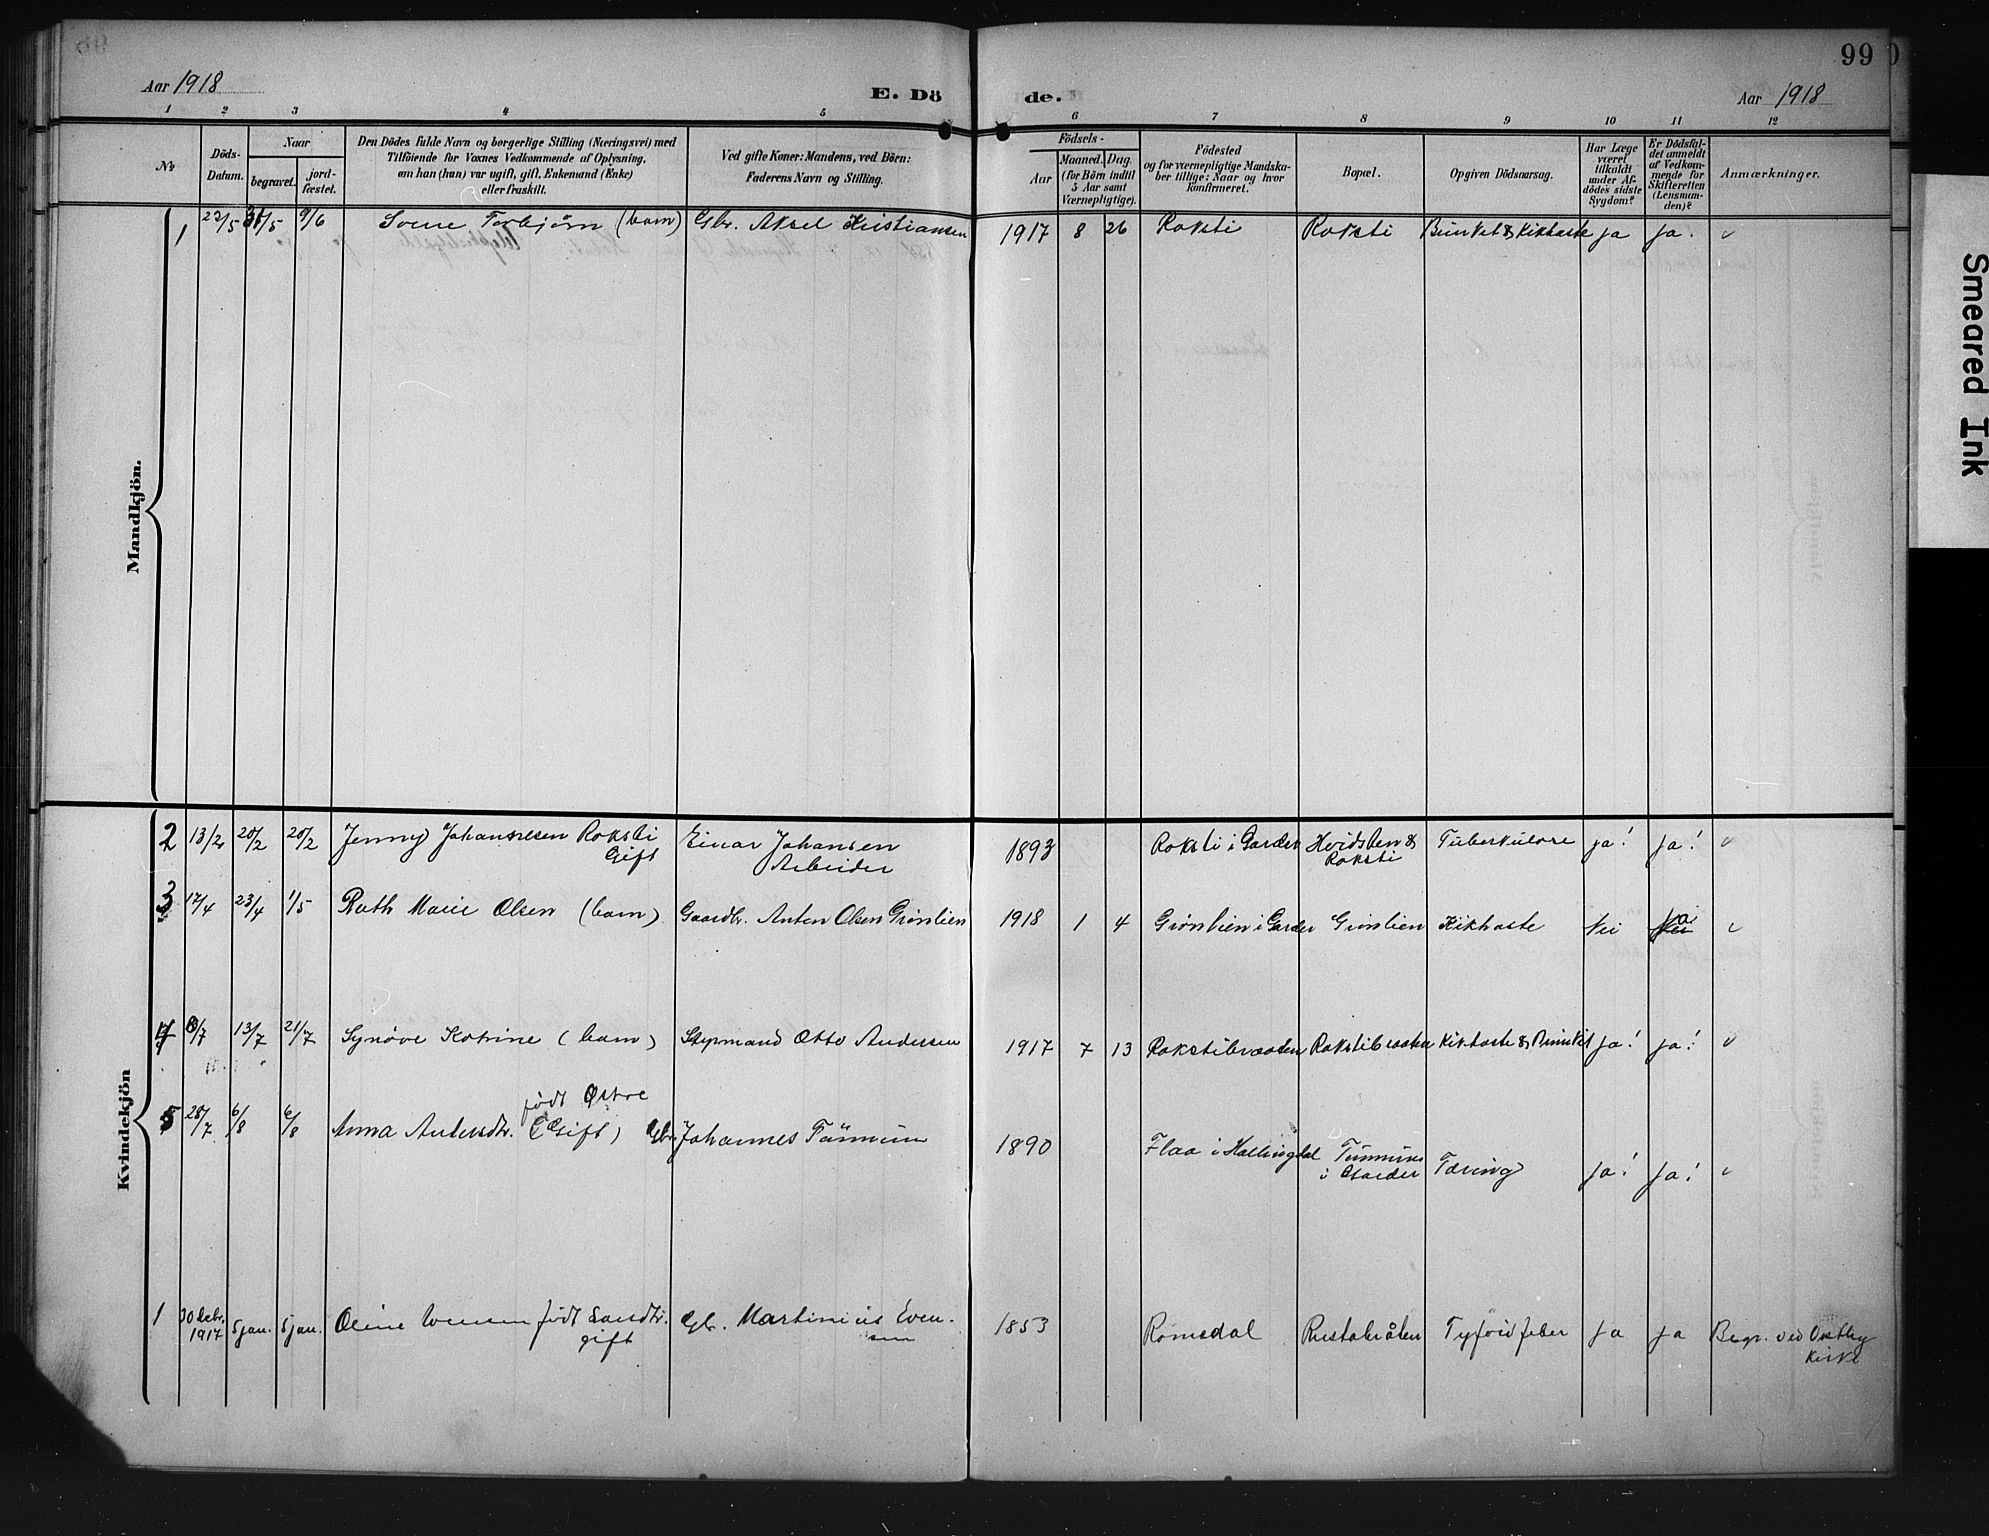 99
Aar 1918
E. Dö de.
Aar 1918
1 2 3 4 5 6 7 8 9 10 11 12
No
Döds-Datum.
Naar
begravet.
jord-fæstet.
Den Dödes fulde Navn og borgerlige Stilling (Næringsvei) med
Tilföiende for Voxnes Vedkommende af Oplysning,
om han (hun) var ugift, gift, Enkemand (Enke)
eller fraskilt.
Ved gifte Koner: Mandens, ved Börn:
Faderens Navn og Stilling.
Födsels-
Aar
Maaned. Dag.
(for Börn indtil
5 Aar samt
Værnepligtige).
Födested
og for værnepligtige Mandska-
ber tillige: Naar og hvor
konfirmeret.
Bopæl.
Opgiven Dödsaarsag.
Har Læge
været
tilkaldt
under Af-
dödes sidste
Sygdom?
Er Dödsfal-
det anmeldt
af Vedkom-
mende for
Skifteretten
(Lensman-
den)?
Anmærkninger.
Mandkjön.
1 22/5 31/5 9/6 Sverre Torbjörn (barn) Gbr. Aksel Kristiansen 1917 8 26 Roksti Roksti Brunkit & Kikhoste ja ja.
Kvindekjön
2 13/2 20/2 20/2 Jenny Johannesen Roksti Gift Einar Johansen Arbeider 1893 Roksti i Garder Hvidsten & Roksti Tuberkulose ja! ja!
3 17/4 23/4 1/5 Ruth Marie Olsen (barn) Gaardbr. Anton Olsen Grønlien 1918 1 4 Grønlien i Garder Grønlien Kikhoste Nei Nei ja
4 8/7 13/7 21/7 Synöve Katrine (barn) Stepmand Otto Andersen 1917 7 13 Rokstibraaten Rokstibraaten Kikhoste & Brunkit ja! ja!
5 28/7 6/8 6/8 Anna Andersdtr. født Østre (Gift) Gbr. Johannes Tømmum 1890 Flaa i Hallingdal i Garder Tæring ja! ja!
1 30 Debr. 1917 5 jan. 5 jan. Oline Evensen født Larsdtr. gift Gb. Martinius Even-
sen 1853 Romsdal Rustabråten Tyfoid feber ja ja Begr. ved Østby
Kirke
Smeared Ink